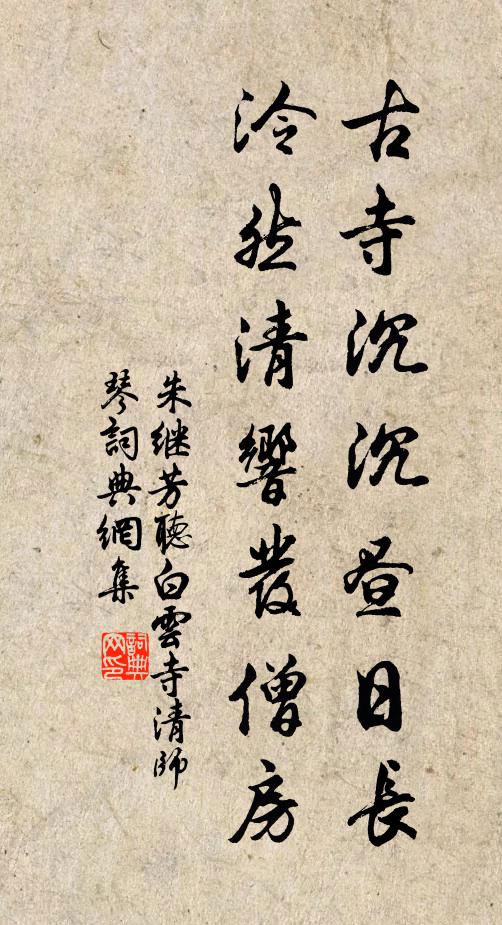 古寺沉沉昼日長
泠然清響發僧房
朱継芳聽白雲寺清師
琴詞典網集
詞典网印